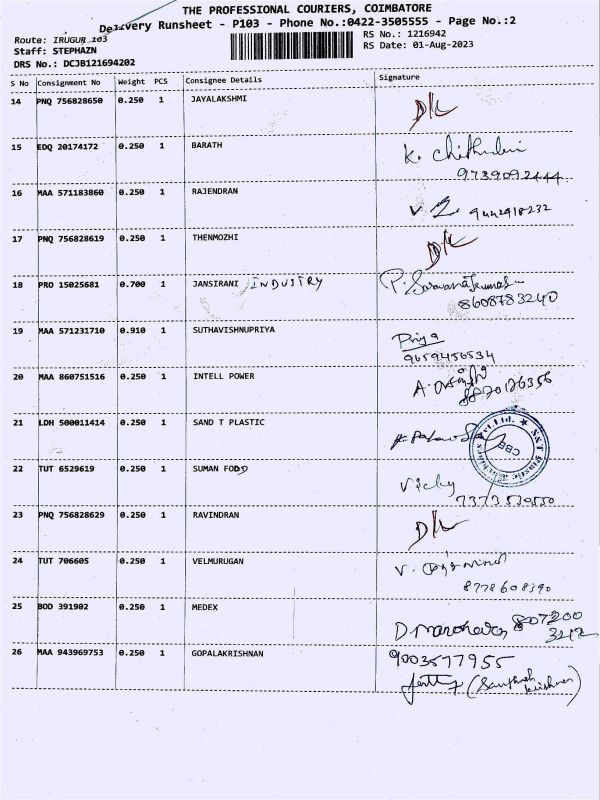 THE PROFESSIONAL COURIERS, COIMBATORE
Delivery Runsheet - P103 - Phone No.:0422-3505555 - Page No.:2
Route: IRUGUR 103
RS No.: 1216942
Staff: STEPHAZN
RS Date: 01-Aug-2023
DRS No.: DCJB121694202
S No Consignment No Weight PCS Consignee Details Signature
14 PNQ 756828650 0.250 1 JAYALAKSHMI D/L
15 EDQ 20174172 0.250 1 BARATH K.
9739092444
16 MAA 571183860 0.250 1 RAJENDRAN V 9442918232
17 PNQ 756828619 0.250 1 THENMOZHI D/L
18 PRO 15025681 0.700 1 JANSIRANI INDUSTRY P. Saravanakumar
8608783240
19 MAA 571231710 0.910 1 SUTHAVISHNUPRIYA Priya
9659456534
20 MAA 860751516 0.250 1 INTELL POWER A.
21 LDH 500011414 0.250 1 SAND T PLASTIC
CBE
22 TUT 6529619 0.250 1 SUMAN FOOD Vicky
7373539550
23 PNQ 756828629 0.250 1 RAVINDRAN D/L
24 TUT 706605 0.250 1 VELMURUGAN V.
8778608390
25 BOD 391902 0.250 1 MEDEX 807200
3212
26 MAA 943969753 0.250 1 GOPALAKRISHNAN 9003577955